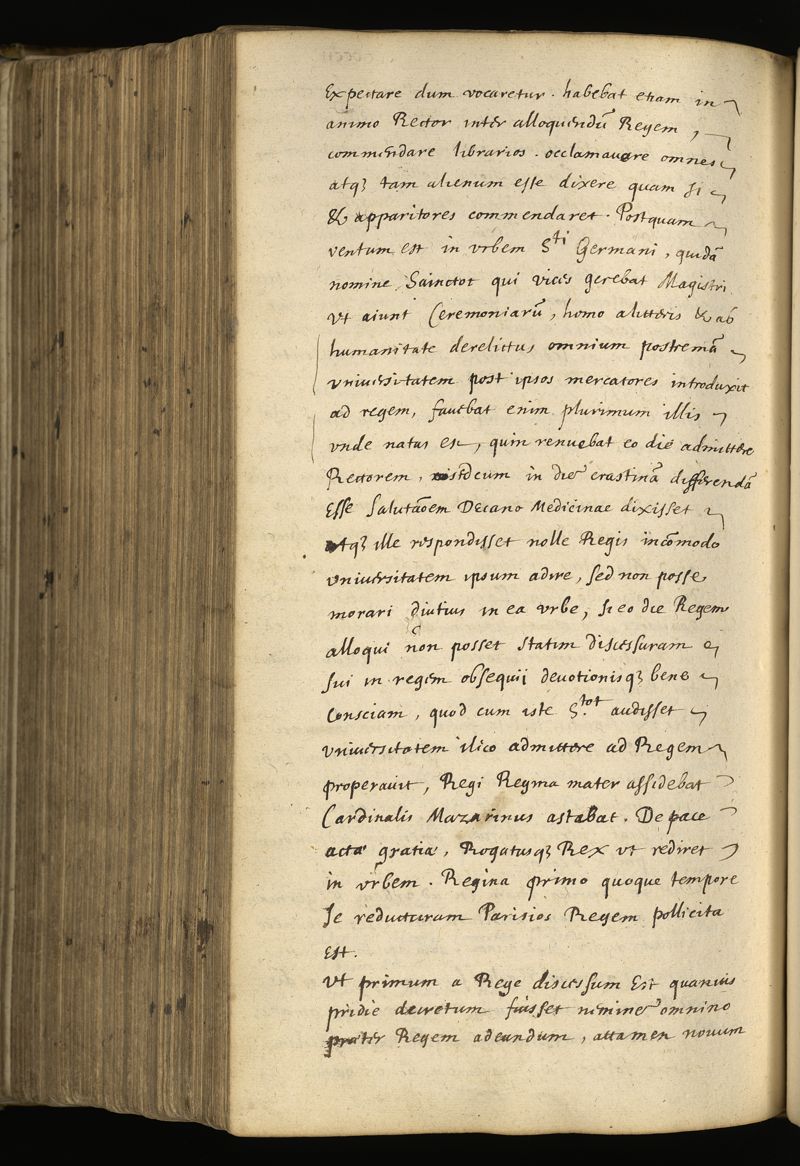 Expectare dum vocaretur. habebat etiam in
animo Rector inter alloquendũ Regem,
commendare librarios. occlamavere omnes
atqꝫ tam alienum esse dixere quam si
& apparitores commendaret. Postquam
ventum est in vrbem Sti Germani, quidã
nomine Sainctot qui vices gerebat Magistri
vt aiunt Ceremoniarũ, homo a litteris & ab
humanitate derelictus omnium postremã
vniversitatem post ipsos mercatores introduxit
ad regem, favebat enim plurimum illis
vnde natus est, quin renuebat eo die admittere
Rectorem, cum in diem crastinã differendã
Esse salutãoem Decano Medicinae dixisset
atqꝫ ille respondisset nolle Regis incõmodo
vniversitatem ipsum adire, sed non posse
morari diutius in ea vrbe, si eo die Regem
alloqui non posset statim discessuram
sui in regem obsequii devotionisqꝫ bene
Consciam, quod cum iste S.tot audisset
vniversitatem ilico admittere ad Regem
properavit, Regi Regina mater assidebat
Cardinalis Mazarinus astabat. De pace
actæ gratiæ, Rogatusqꝫ Rex vt rediret
in vrbem. Regina primo quoque tempore
se reducturam Parisios Regem pollicita
est.
Vt primum a Rege discessum Est quanvis
pridie decretum fuisset neminem omnino
præter Regem adeundum, attamen novum